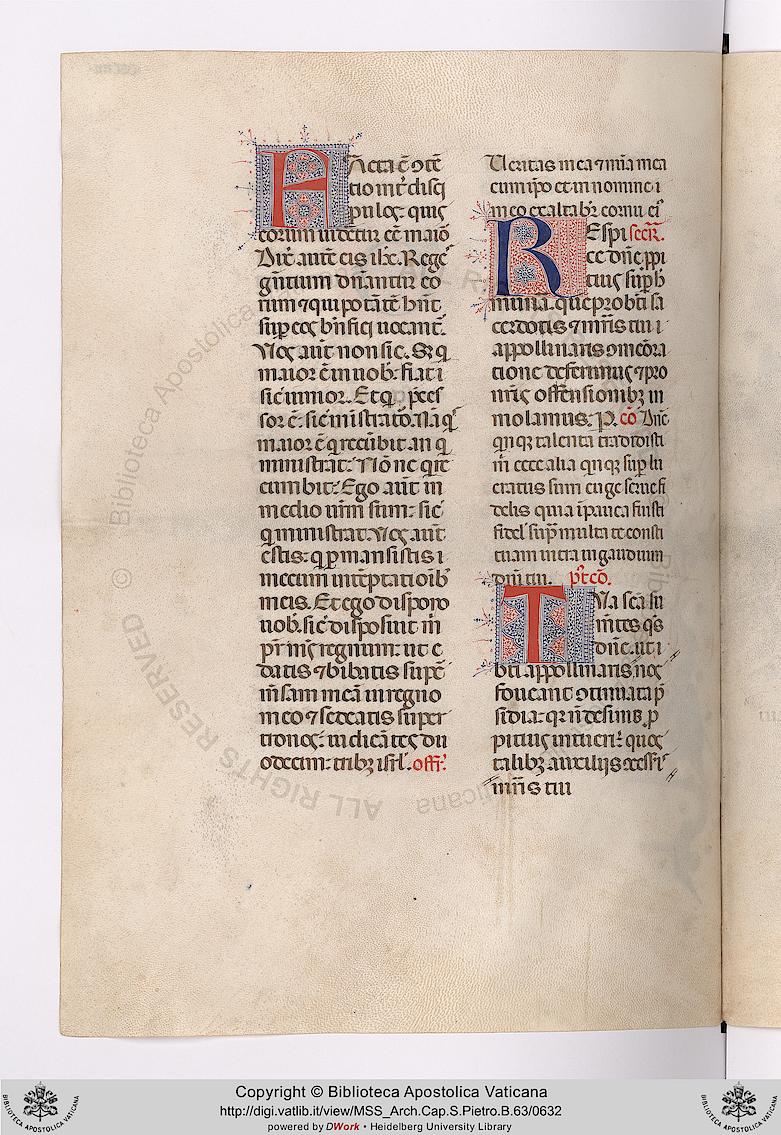 Facta ē ōtē
tio int̄ disci
pulos: quis
eorum uidetur eē maio᷑
Dix̄ autē eis ihc̄. Reges
gentium dn̄antur eo
rum ⁊ qui potatē hn̄t
sup̄ eos bn̄fici uocant᷑.
Uos aūt non sic. Sꝫ q̄
maior ē in uob᷒ fiat
sic̄ iunior. Et qi p̄ces
sor ē: sic̄ ministrator. Nā qs
maior ē q̄ recūbit an q̄
ministrat: Nōne q̄ re
cumbit: Ego aūt in
medio ur̄m sum: sic̄
q̄ ministrat. Uos aūt
estis: q̄ ꝑmansistis
mecum in tēptatōib᷒
meis. Et ego dispono
uob᷒ sic̄ disposuit m̄
pr̄ ms̄ regnum: ut e
datis ⁊ bibatis sup̄
m̄sam meā in regno
meo ⁊ sedeatis super
tronos: iudicātes du
odecim: tribꝫ isrl̄. off̄.
Ueritas mea ⁊ mīa mea
cum ipō et in nomine
meo exaltabr̄ cornu eī
Respi secr̄.
ce dn̄e ꝓpi
tius sup̄ h
munā. que ꝓ bt̄i sa
cerdotis ⁊ mr̄is tui
appollinaris ꝯmēora
tione deferimus ⁊ pro
nr̄is offensionibꝫ im
molamus. P. cō Dn̄e
qnqꝫ talenta tradidisti
m̄ ecce alia qnqꝫ sup̄ lu
cratus sum euge serue fi
delis quia ī pauca fuisti
fidel᷒ sup̄ multa te consti
tuam intra in gaudium
dn̄i tui. p̄t cō.
Tua sc̄a su
m̄tes qs̄
dn̄e. ut
bt̄i appollinaris nos
foueant ꝯtinuata p̄
sidia: qr̄ n̄ desinis ꝓ
pitius intueri: quos
talibꝫ auxilijs ꝯcess̄i
mn̄is tui
Copyright © Biblioteca Apostolica Vaticana
http://digi.vatlib.it/view/MSS_Arch.Cap.S.Pietro.B.63/0632
powered by DWork • Heidelberg University Library
BIBLIOTECA APOSTOLICA VATICANA
BIBLIOTECA APOSTOLICA VATICANA